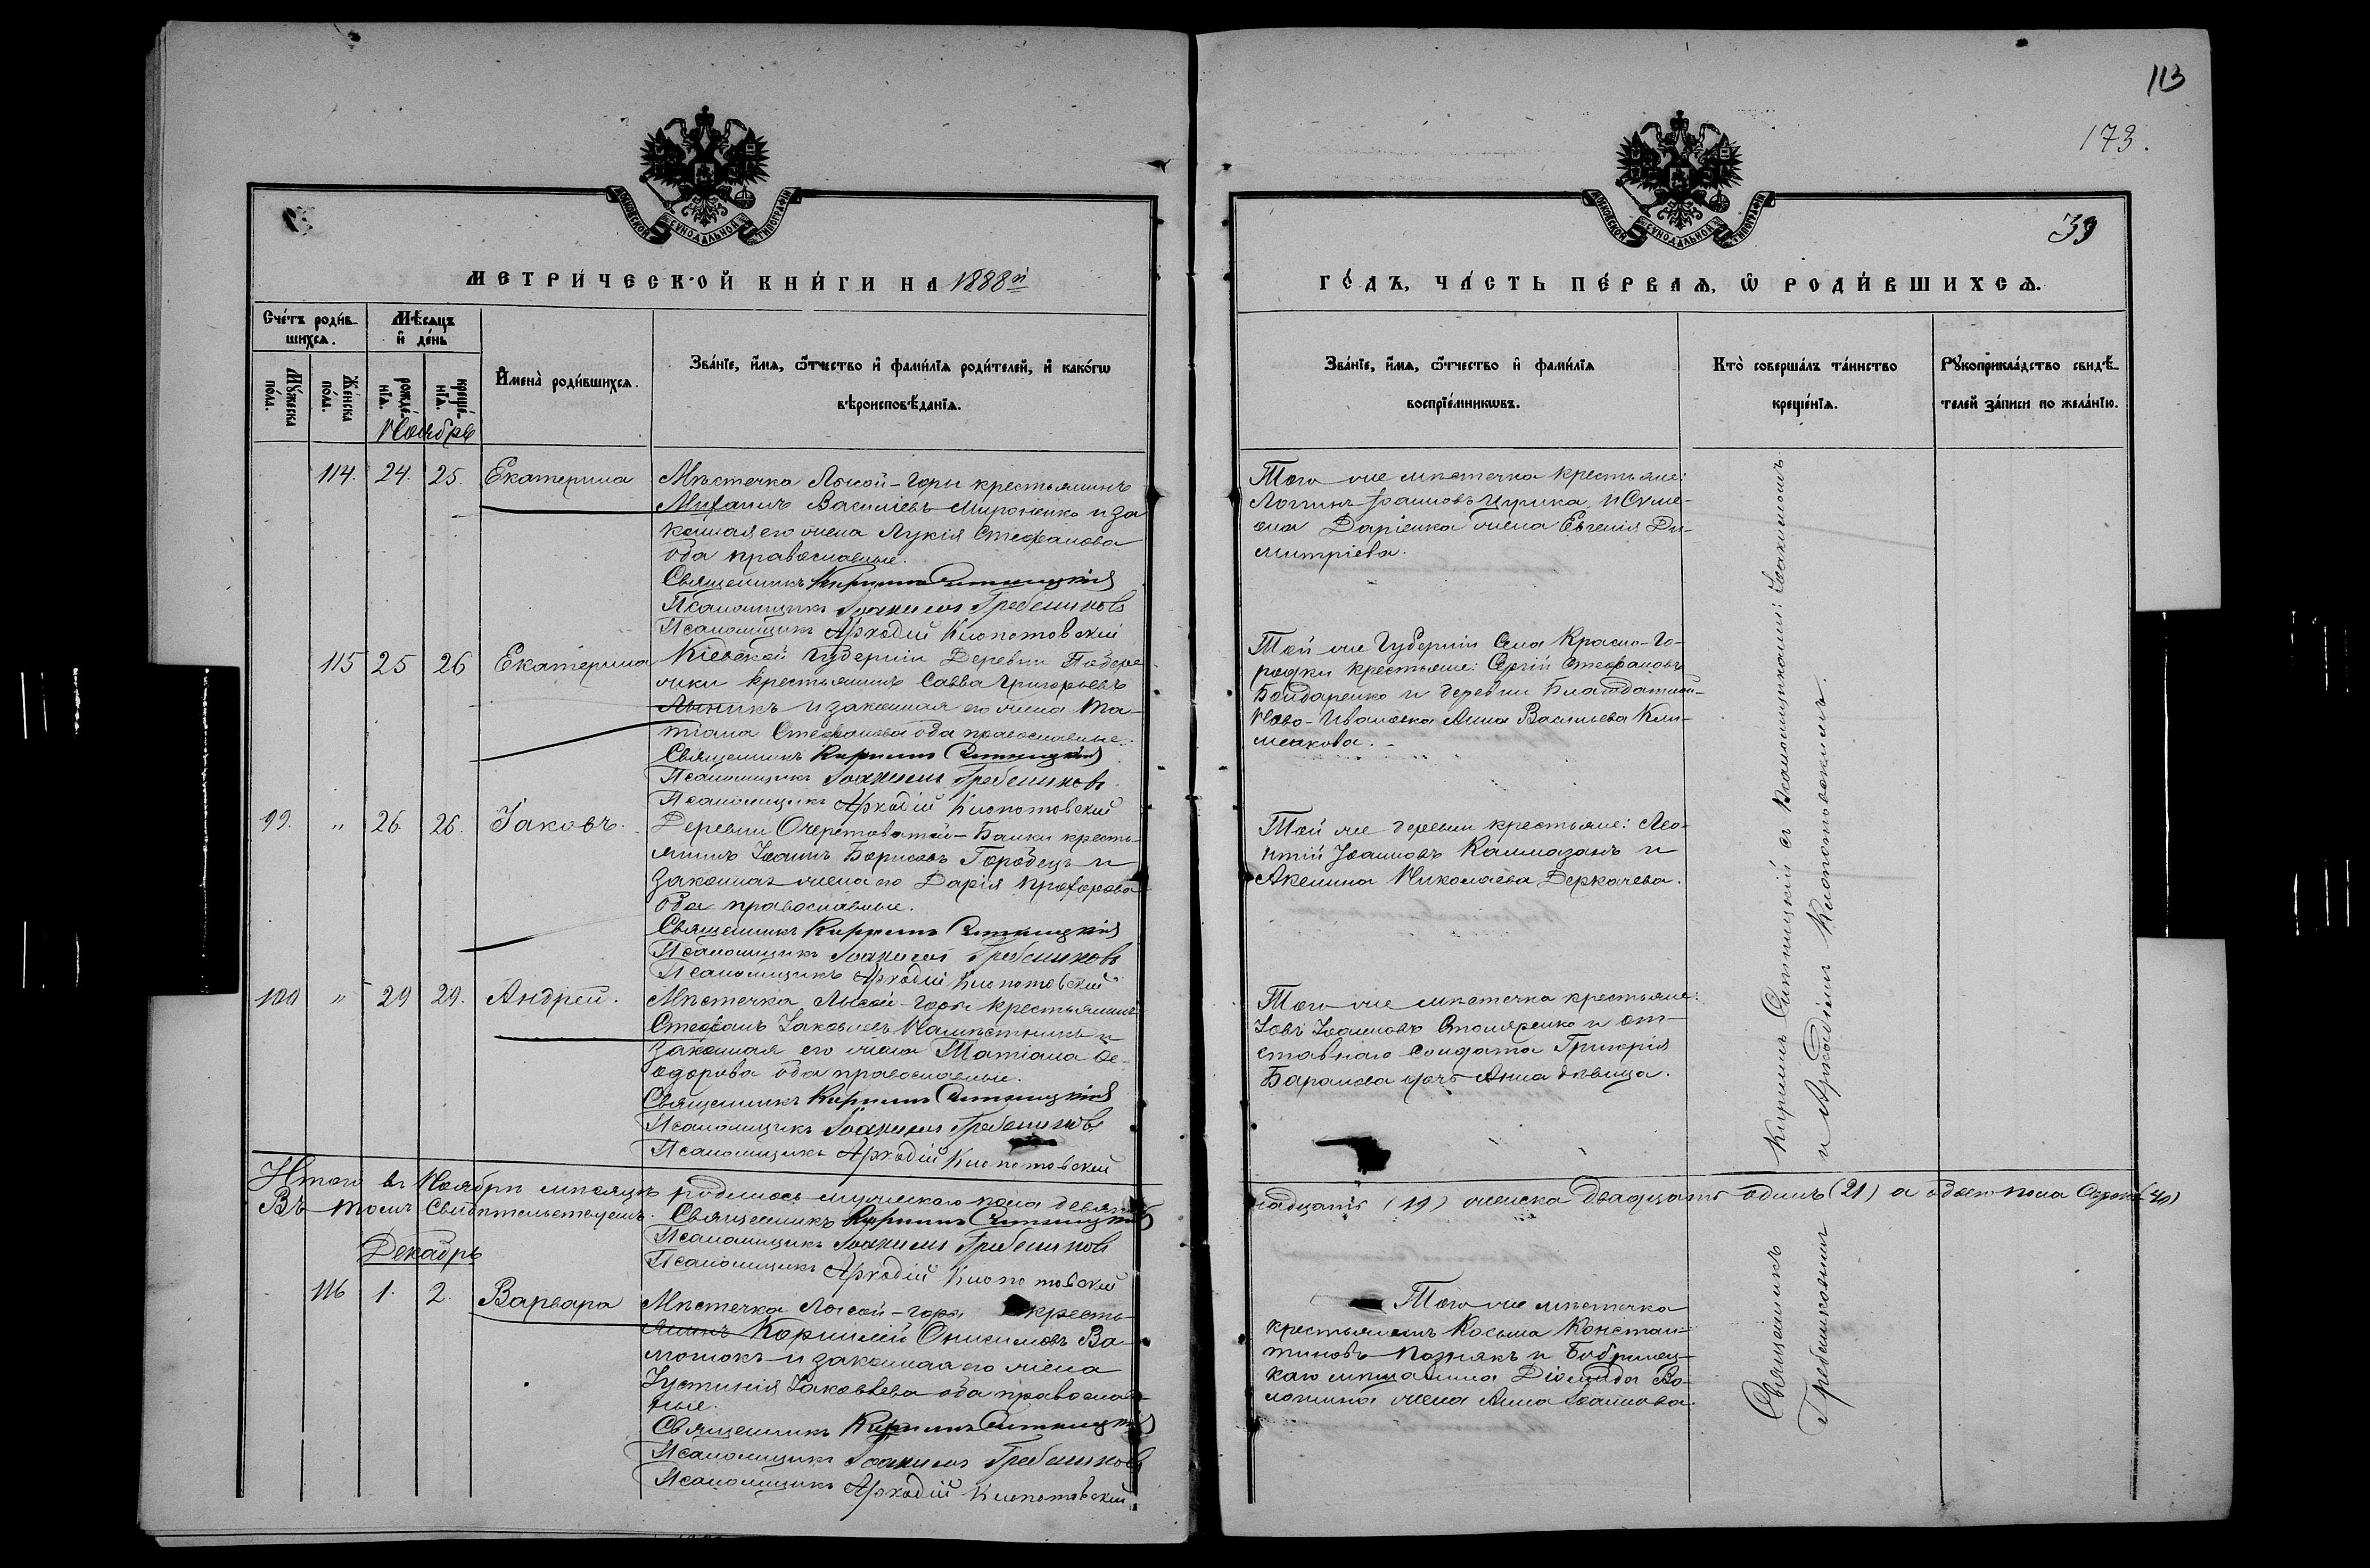 113
173.
39
МОСКОВСКОЙ СѴНОДАЛЬНОЙ ТИПОГРАФІИ
МОСКОВСКОЙ СѴНОДАЛЬНОЙ ТИПОГРАФІИ
МЕТРИ́ЧЕСКОЙ КНИ́ГИ НА 1888й
ГО́ДЪ, ЧА́СТЬ ПЕ́РВАѦ, Ѡ РОДИ́ВШИХСѦ.
Сче́тъ роди́в-
шихсѧ.
Мѣ́сѧцъ
и҆ де́нь
Му́жеска
по́ла.
Же́нска
по́ла.
рожде́-
нїѧ.
креще́-
нїѧ.
И҆мена̀ роди́вшихсѧ.
Зва́нїе, и҆́мѧ, ѻ҆́тчество и҆ фами́лїѧ роди́телей, и҆ како́гѡ
вѣроисповѣ́данїѧ.
Зва́нїе, и҆́мѧ, ѻ҆́тчество и҆ фами́лїѧ
воспрїе́мникѡвъ.
Кто̀ соверша́лъ та́инство
креще́нїѧ.
Рꙋкоприкла́дство свидѣ́-
телей за́писи по жела́нїю.
Ноябрь
114. 24. 25. Екатерина
Мѣстечка Лысой-Горы крестьянинъ
Михаилъ Василіевъ Мироненко и за
конная его жена Лукія Стефанова
оба православные.
Священникъ Кириллъ Ситницкій
Псаломщикъ Іоакимъ Гребениковъ
Псаломщикъ Аркадій Клопотовскій
Того же мѣстечка крестьяне:
Логинъ Іоанновъ Цурика, и Симе-
она Даріенка жена Евгенія Ди-
митріева.
115 25 26 Екатерина
Кіевской Губерніи Деревни Побере
жки крестьянинъ Савва Григорьевъ
Лыникъ и законная его жена Та-
тіана Стефанова оба православные.
Священникъ Кириллъ Ситницкій
Псаломщикъ Іоакимъ Гребениковъ
Псаломщикъ Аркадій Клопотовскій
Той же Губерніи Села Красно-Го-
родки крестьяне: Сергій Стефановъ
Бондаренко и деревни Благодатной-
Ново-Ивановка Анна Васильева Кли-
менкова.
99. " 26. 26. Іаковъ.
Деревни Очеретоватой-Балки кресть-
янинъ Іоаннъ Борисовъ Городецъ и
законная жена его Дарія Прохорова
оба православные.
Священникъ Кириллъ Ситницкій
Псаломщикъ Іоакимъ Гребениковъ
Псаломщикъ Аркадій Клопотовскій
Той же деревни крестьяне: Лео-
нтій Іоанновъ Калмазанъ и
Акелина Николаева Деркачева.
100 " 29 29. Андрей.
Мѣстечка Лысой-Горы крестьянинъ
Стефанъ Іаковлевъ Намѣстникъ и
законная его жена Татіана Ѳе-
одорова оба православные.
Священникъ Кириллъ Ситницкій
Псаломщикъ Іоакимъ Гребениковъ
Псаломщикъ Аркадій Клопотовскій
Того же мѣстечка крестьяне:
Іовъ Іоанновъ Столяренко и от-
ставнаго солдата Григорія
Баранова дочь Анна дѣвица.
Итого въ Ноябрѣ мѣсяцѣ родилось мужескаго пола девят-
надцать (19) женска двадцать одинъ (21) а обоего пола Сорокъ (40)
Въ томъ свидѣтельствуемъ. Священникъ Кириллъ Ситницкій
Псаломщикъ Іоакимъ Гребениковъ
Псаломщикъ Аркадій Клопотовскій
Декабрь
116 1. 2. Варвара
Мѣстечка Лысой-Горы кресть-
янинъ Корнилій Онисимовъ Во-
лошокъ и законная его жена
Іустинія Іаковлева оба православ-
ные.
Священникъ Кириллъ Ситницкій
Псаломщикъ Іоакимъ Гребениковъ
Псаломщикъ Аркадій Клопотовскій
Того же мѣстечка
крестьянинъ Косьма Констан-
тиновъ Познякъ и Бобринец-
каго мѣщанина Діомида Во-
лошина жена Анна Іоаннова.
Священникъ Кириллъ Ситницкій съ Псаломщиками: Іоакимомъ
Гребениковымъ и Аркадіемъ Клопотовскимъ.